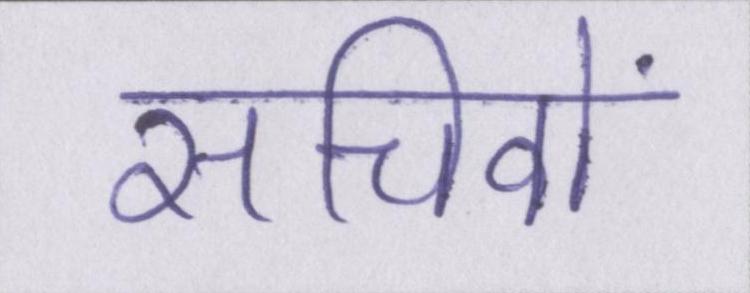 सचिवों